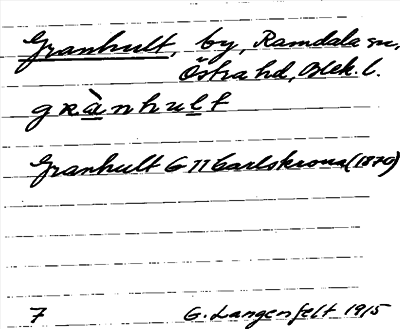 Granhult, by, Ramdala sn,
Östra hd, Blek. l.
grànhult
Granhult G 77 Carlskrona (1879)
7 G. Langenfelt 1915